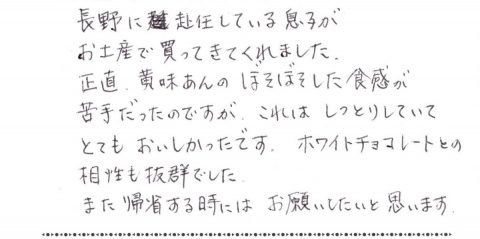 長野に赴任している息子が
お土産で買ってきてくれました.
正直、黄味あんのぼそぼそした食感が
苦手だったのですが、これはしっとりしていて
とてもおいしかったです. ホワイトチョコレートとの
相性も抜群でした.
また帰省する時にはお願いしたいと思います.